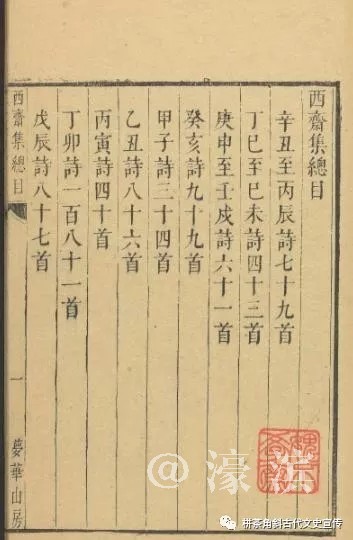 西齋集總目
辛丑至丙辰詩七十九首
丁巳至巳未詩四十三首
庚申至壬戌詩六十一首
癸亥詩九十九首
甲子詩三十四首
乙丑詩八十六首
丙寅詩四十首
丁卯詩一百八十一首
戊辰詩八十七首
西齋集總目
一
夢華山房
@濠
栟茶角斜古代文史宣传